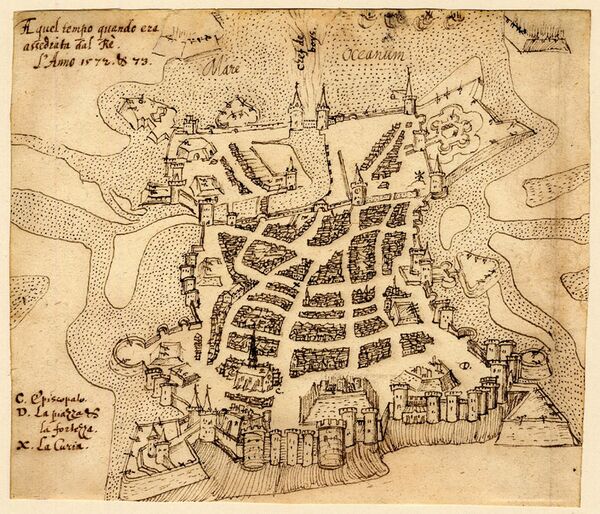 A quel tempo quando era
assediata dal Re
L'Anno 1572. & 73.
Mare
Oceanum
C. Episcopato.
D. La piazza &
la fortezza.
X. La Curia.
C.
D.